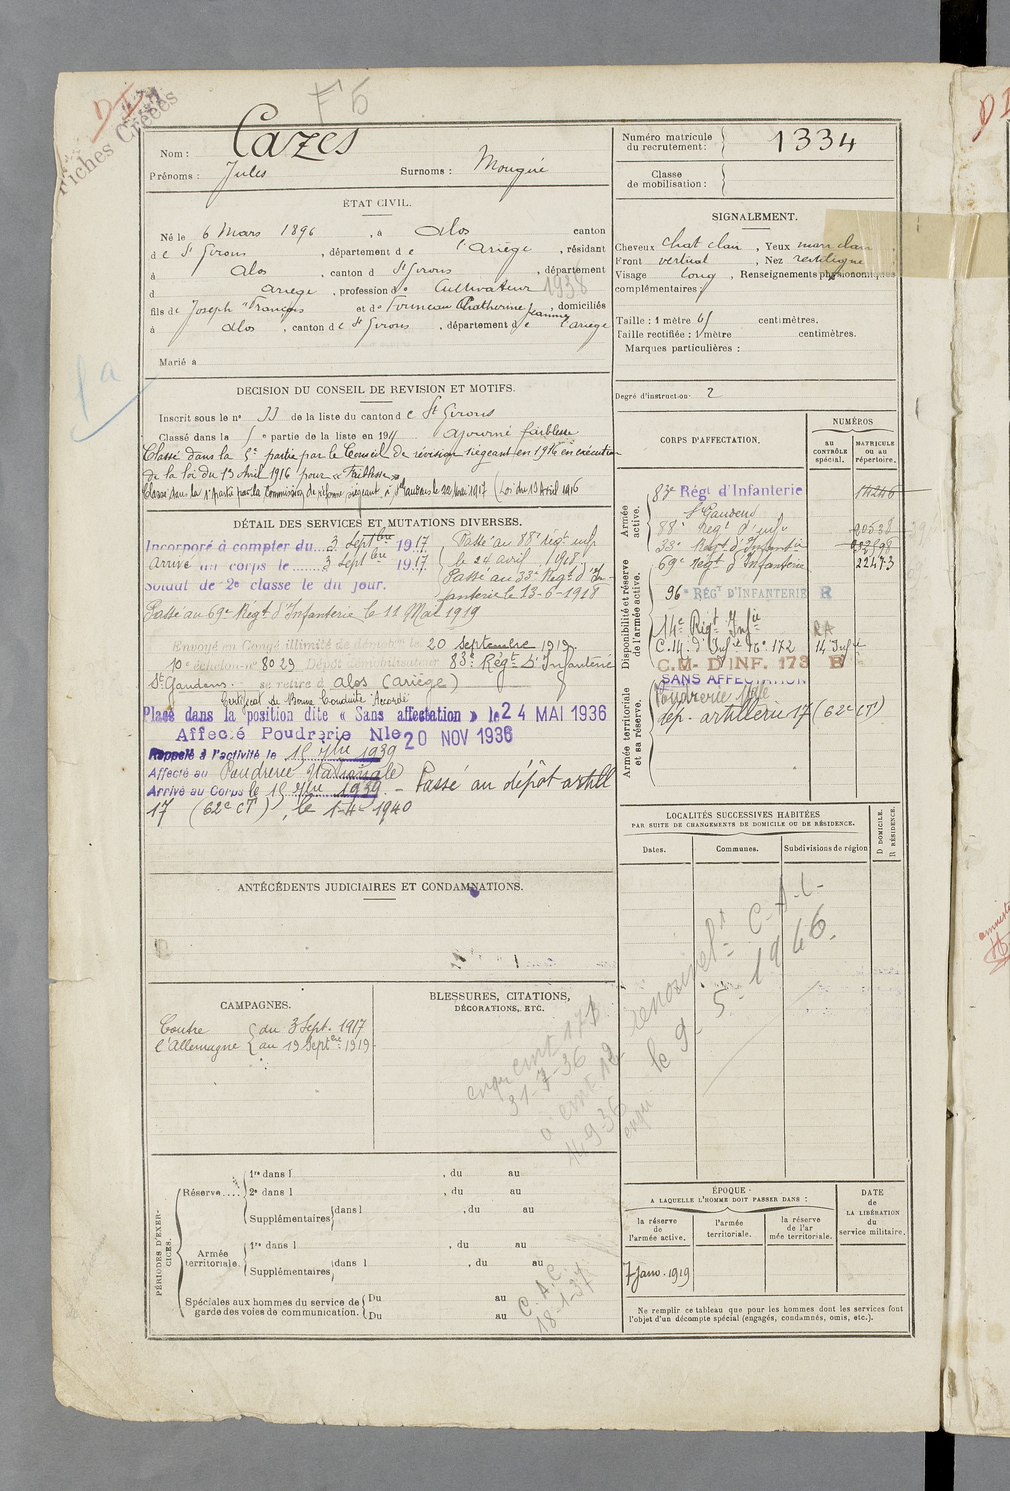 F5
DI
Fiches Créées
Nom : Cazes
Prénoms : Jules Surnoms : Mouguié
ÉTAT CIVIL.
Né le 6 Mars 1896, à Alos canton
de St Girons, département de l'Ariège, résidant
à Alos, canton d St Girons, département
d Ariège, profession de Cultivateur 1938
fils de Joseph François et de Fourneau Catherine Jeanne, domiciliés
à Alos, canton de St Girons, département de l'Ariège
Marié à
Numéro matricule du recrutement : 1334
Classe de mobilisation :
SIGNALEMENT.
Cheveux chat clair, Yeux marr clair
Front vertical, Nez rectiligne
Visage long, Renseignements physionomiques
complémentaires :
Taille : 1 mètre 61 centimètres.
Taille rectifiée : 1 mètre centimètres.
Marques particulières :
Degré d'instruction. 2
DECISION DU CONSEIL DE REVISION ET MOTIFS.
Inscrit sous le no 22 de la liste du canton de St Girons
Classé dans la 5e partie de la liste en 1915 ajourné faiblesse
Classé dans la 5e partie par le Conseil de révision siégeant en 1916 en exécution
de la loi du 13 Avril 1916 pour « Faiblesse »
Classé dans la 1e partie par la Commission de réforme siégeant à St Gaudens le 22 Mai 1917 (Loi du 13 Avril 1916
DÉTAIL DES SERVICES ET MUTATIONS DIVERSES.
Incorporé à compter du 3 Septbre 1917
Arrivé au corps le 3 Septbre 1917
Soldat de 2e classe le dit jour.
Passé au 88e régt inf
le 24 avril 1918
Passé au 33e Régt d'In-
fanterie le 13-6-1918
Passé au 69e Régt d'Infanterie le 11 Mai 1919
Envoyé en Congé illimité de démobon le 20 Septembre 1919
10e échelon no 8029 Dépôt démobilisateur 83e Régt D'Infanterie
St Gaudens. se retire à Alos (Ariège)
Certificat de Bonne Conduite Accordé
Placé dans la position dite « Sans affectation » le 24 MAI 1936
Affecté Poudrerie Nle 20 NOV 1936
Rappelé à l'activité le 15 7bre 1939
Affecté au Poudrerie Nationale
Arrivé au Corps le 15 7bre 1939. - Passé au dépôt artill
17 (62e CT), le 1-4-1940
CORPS D'AFFECTATION.
NUMÉROS
au CONTRÔLE spécial.
MATRICULE ou au répertoire.
Armée active.
83e Régt d'Infanterie 14246
St Gaudens
88e Régt d'inf
33e Régt d'Infantie
69e Régt d'Infanterie 22473
Disponibilité et réserve de l'armée active.
96e RÉGT D'INFANTERIE R
14e Régt Infie RA
C.M. d'Infie No 172 14 Infie
C.M. D'INF. 173 B
SANS AFFECTATION
Armée territoriale et sa réserve.
Poudrerie Nle
dép. artillerie 17 (62e CT)
LOCALITÉS SUCCESSIVES HABITÉES
PAR SUITE DE CHANGEMENTS DE DOMICILE OU DE RÉSIDENCE.
Dates. Communes. Subdivisions de région D DOMICILE. R RÉSIDENCE.
C-A-L-
le 9-5-1946.
ANTÉCÉDENTS JUDICIAIRES ET CONDAMNATIONS.
CAMPAGNES.
Contre l'Allemagne
du 3 Sept. 1917
au 19 Septbre 1919
BLESSURES, CITATIONS,
DÉCORATIONS, ETC.
31-7-36
14-9-36
PÉRIODES D'EXERCICES.
Réserve....
1re dans l , du au
2e dans l , du au
Supplémentaires dans l , du au
Armée territoriale.
1re dans l , du au
Supplémentaires dans l , du au
Spéciales aux hommes du service de
garde des voies de communication.
Du au
Du au
C.A.C.
18-1-37
ÉPOQUE
A LAQUELLE L'HOMME DOIT PASSER DANS :
la réserve de l'armée active.
l'armée territoriale.
la réserve de l'armée territoriale.
DATE de LA LIBÉRATION du service militaire.
7 janv. 1919
Ne remplir ce tableau que pour les hommes dont les services font
l'objet d'un décompte spécial (engagés, condamnés, omis, etc.).